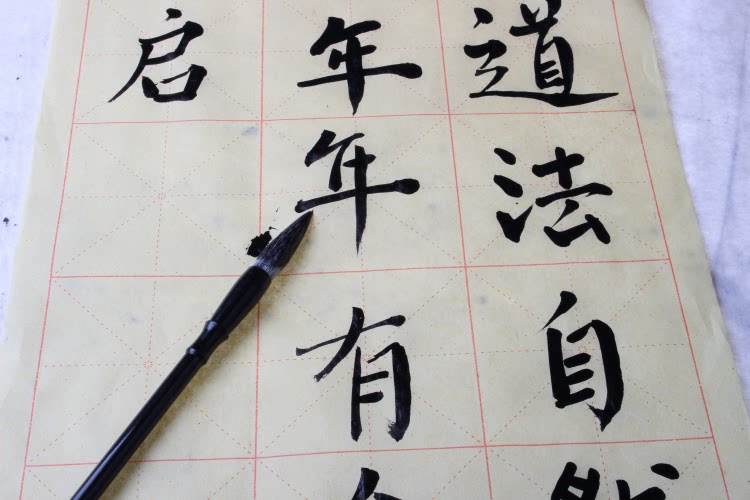 道法自然
年年有
启